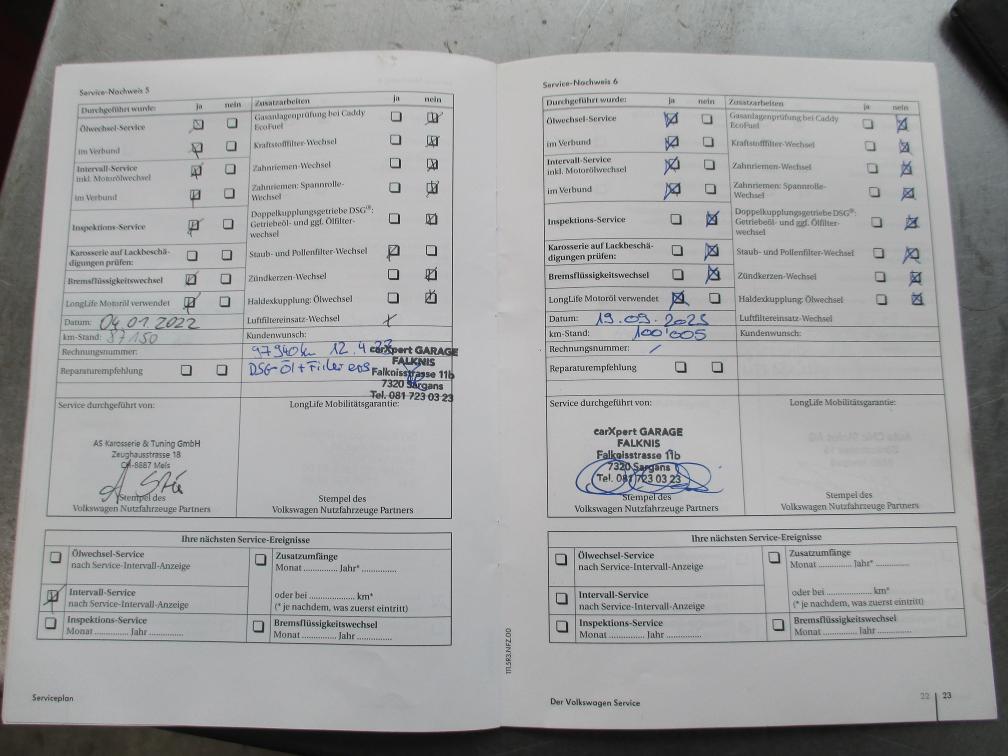 Service-Nachweis 5
Durchgeführt wurde: ja nein Zusatzarbeiten ja nein
Ölwechsel-Service
Gasanlagenprüfung bei Caddy
EcoFuel
im Verbund
Kraftstofffilter-Wechsel
Intervall-Service
inkl. Motorölwechsel
Zahnriemen-Wechsel
im Verbund
Zahnriemen: Spannrolle-
Wechsel
Inspektions-Service
Doppelkupplungsgetriebe DSG®:
Getriebeöl- und ggf. Ölfilter-
wechsel
Karosserie auf Lackbeschä-
digungen prüfen:
Staub- und Pollenfilter-Wechsel
Bremsflüssigkeitswechsel
Zündkerzen-Wechsel
LongLife Motoröl verwendet
Haldexkupplung: Ölwechsel
Datum: 04.01.2022
Luftfiltereinsatz-Wechsel
km-Stand: 87150
Kundenwunsch:
Rechnungsnummer:
97940km 12.4
Reparaturempfehlung
DSG-Öl + Filter
carXpert GARAGE
FALKNIS
Falknisstrasse 11b
7320 Sargans
Tel. 081 723 03 23
Service durchgeführt von:
LongLife Mobilitätsgarantie:
AS Karosserie & Tuning GmbH
Zeughausstrasse 18
CH-8887 Mels
Stempel des
Volkswagen Nutzfahrzeuge Partners
Stempel des
Volkswagen Nutzfahrzeuge Partners
Ihre nächsten Service-Ereignisse
Ölwechsel-Service
nach Service-Intervall-Anzeige
Zusatzumfänge
Monat ............. Jahr* .............
Intervall-Service
nach Service-Intervall-Anzeige
oder bei ...................... km*
(* je nachdem, was zuerst eintritt)
Inspektions-Service
Monat ............. Jahr .............
Bremsflüssigkeitswechsel
Monat ............. Jahr .............
Serviceplan
111.5R3.NFZ.00
Service-Nachweis 6
Durchgeführt wurde: ja nein Zusatzarbeiten ja nein
Ölwechsel-Service
Gasanlagenprüfung bei Caddy
EcoFuel
im Verbund
Kraftstofffilter-Wechsel
Intervall-Service
inkl. Motorölwechsel
Zahnriemen-Wechsel
im Verbund
Zahnriemen: Spannrolle-
Wechsel
Inspektions-Service
Doppelkupplungsgetriebe DSG®:
Getriebeöl- und ggf. Ölfilter-
wechsel
Karosserie auf Lackbeschä-
digungen prüfen:
Staub- und Pollenfilter-Wechsel
Bremsflüssigkeitswechsel
Zündkerzen-Wechsel
LongLife Motoröl verwendet
Haldexkupplung: Ölwechsel
Datum: 19.09.2023
Luftfiltereinsatz-Wechsel
km-Stand: 100'005
Kundenwunsch:
Rechnungsnummer: /
Reparaturempfehlung
Service durchgeführt von:
LongLife Mobilitätsgarantie:
carXpert GARAGE
FALKNIS
Falknisstrasse 11b
7320 Sargans
Tel. 081 723 03 23
Stempel des
Volkswagen Nutzfahrzeuge Partners
Stempel des
Volkswagen Nutzfahrzeuge Partners
Ihre nächsten Service-Ereignisse
Ölwechsel-Service
nach Service-Intervall-Anzeige
Zusatzumfänge
Monat ............. Jahr* .............
Intervall-Service
nach Service-Intervall-Anzeige
oder bei ...................... km*
(* je nachdem, was zuerst eintritt)
Inspektions-Service
Monat ............. Jahr .............
Bremsflüssigkeitswechsel
Monat ............. Jahr .............
Der Volkswagen Service
22 | 23